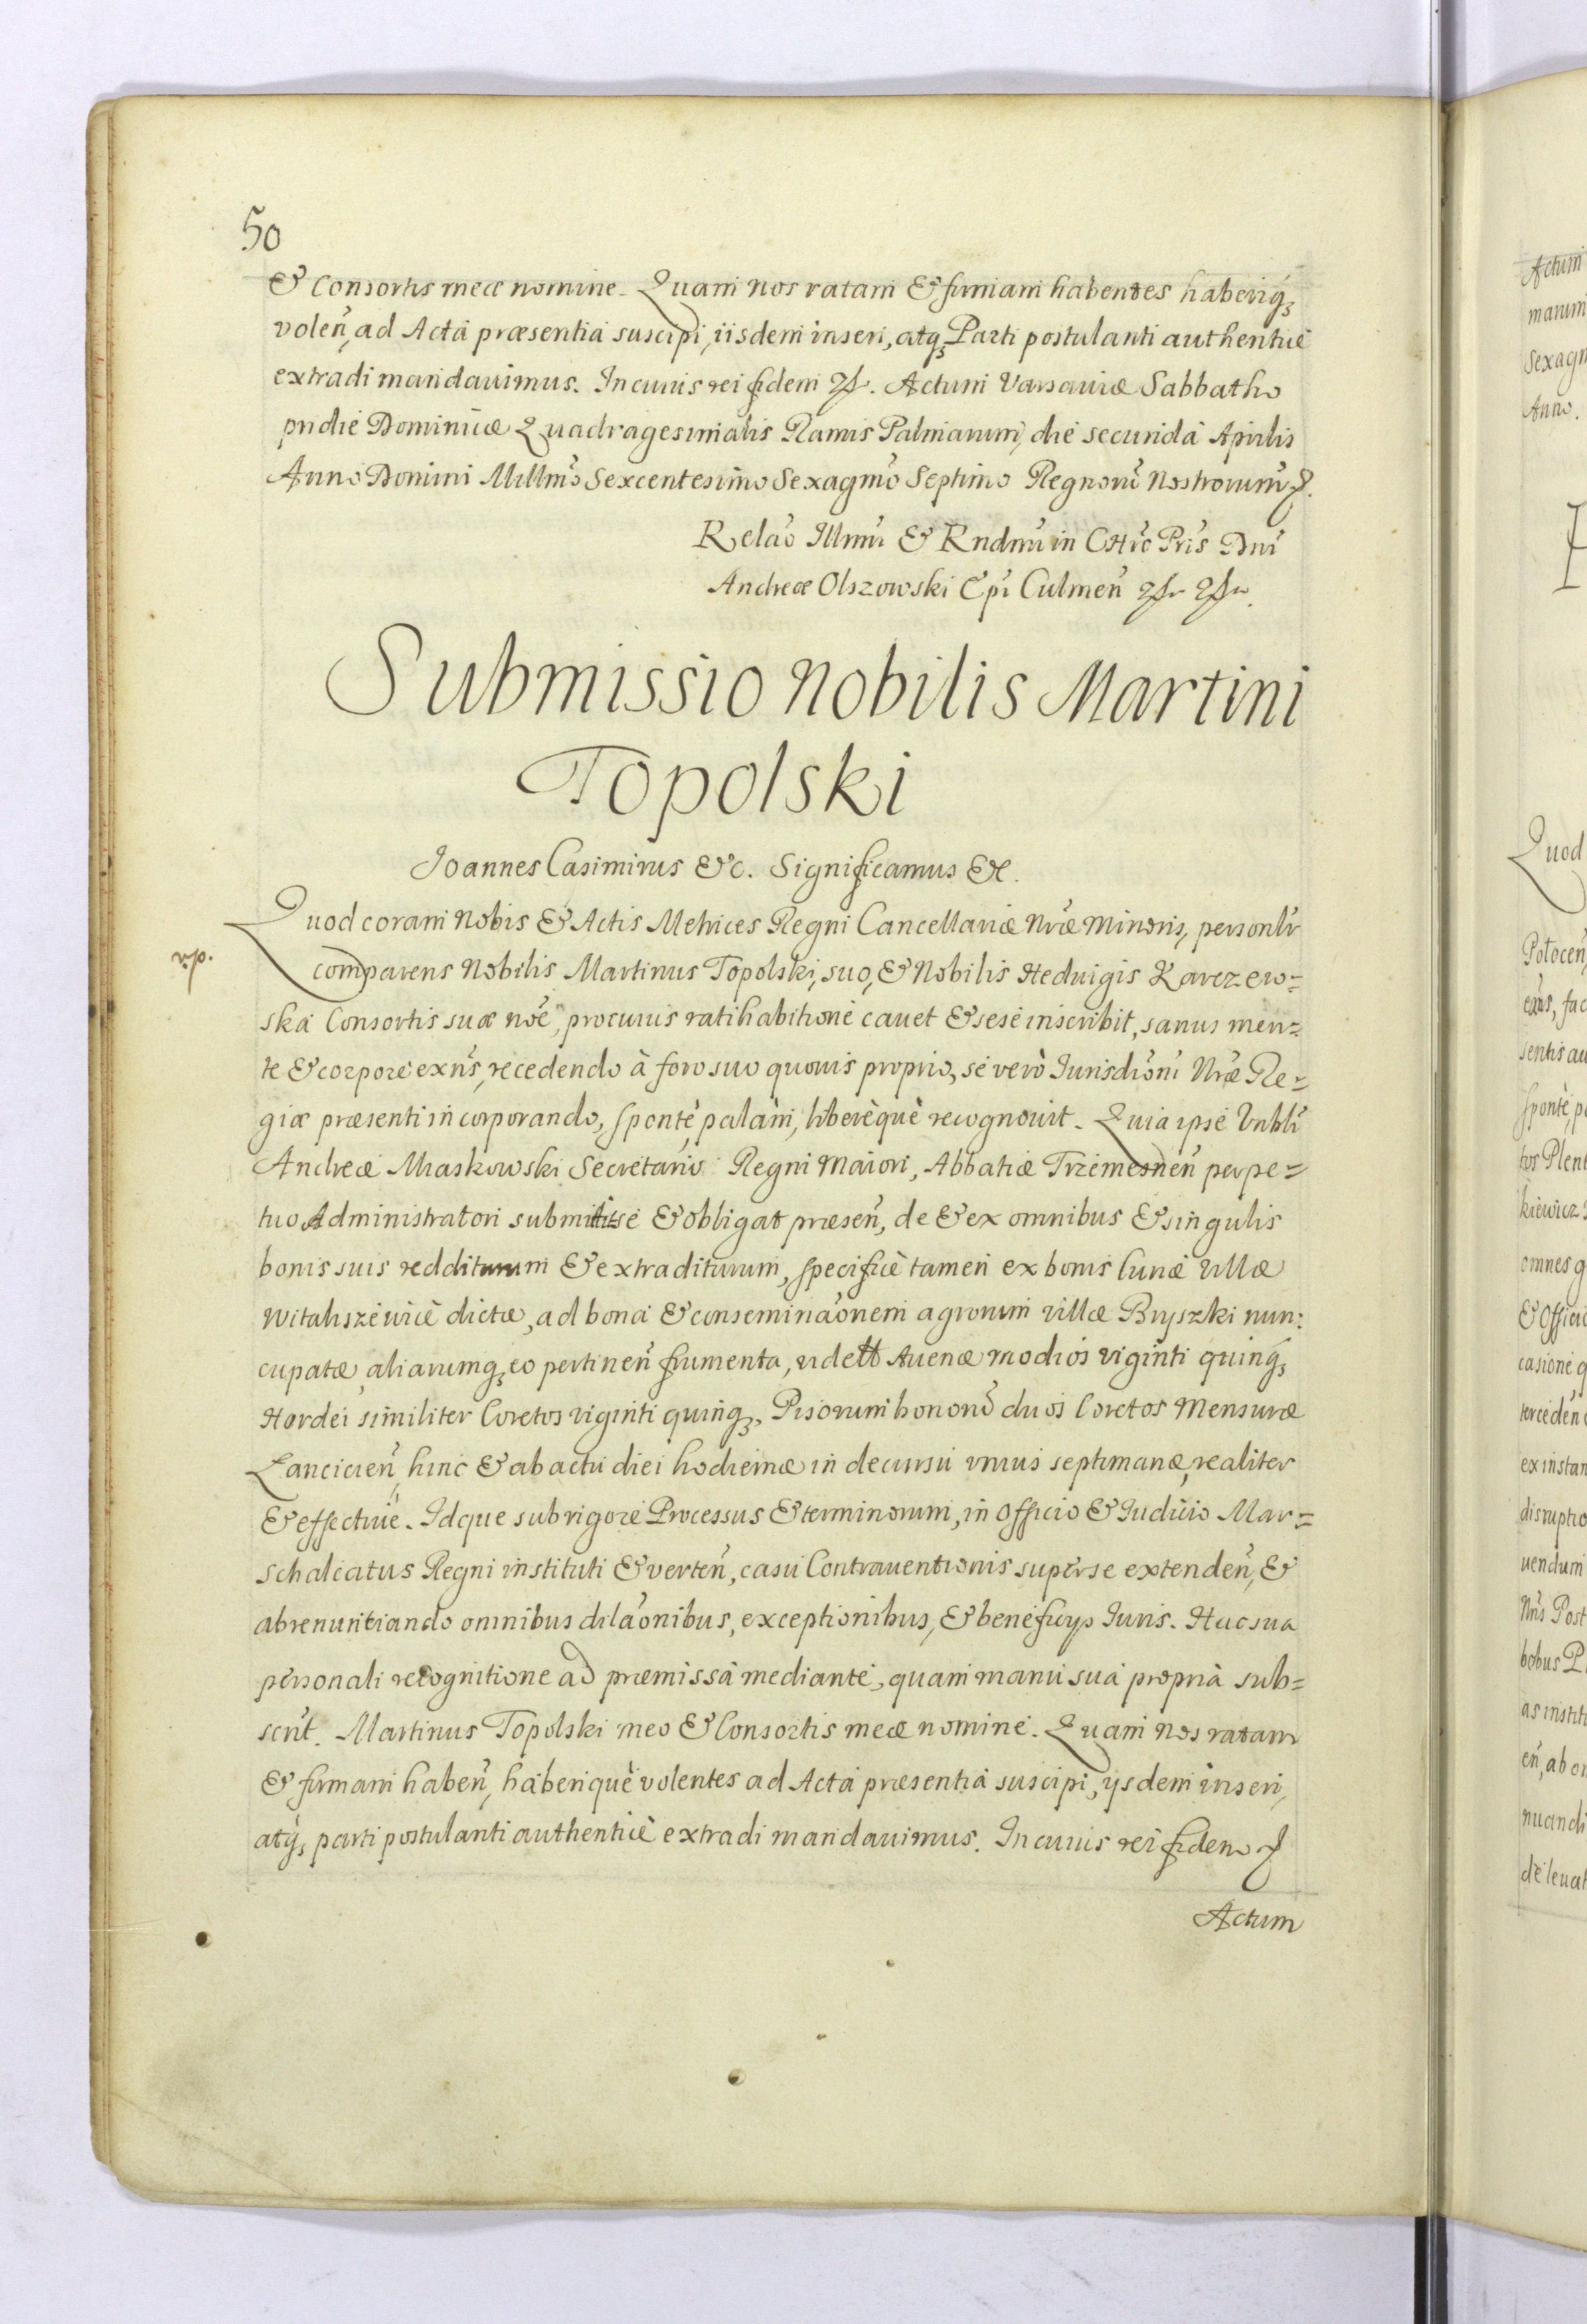 50
& Consortis meæ nomine. Quam nos ratam & firmam habentes haberiq3
voleñ, ad Acta præsentia suscipi, iisdem inseri, atq3 Parti postulanti authenticè
extradi mandauimus. In cuius rei fidem &. Actum Varsauiæ Sabbatho
pridie Dominicæ Quadragesimalis Ramis Palmarum, die secunda Aprilis
Anno Domini Millmo Sexcentesimo Sexagmo Septimo Regnorū Nostrorum &.
Relao Illmi & Rndmi in Chro Pris Dni
Andreæ Olszowski Epi Culmeñ & &.
Submissio Nobilis Martini
Topolski
Joannes Casimirus &c. Significamus &c.
Quod coram Nobis & Actis Metrices Regni Cancellariæ Nræ Minoris, personlr
v.p.
comparens Nobilis Martinus Topolski, suo, & Nobilis Heduigis Karczew=
ska Consortis suæ noe, pro cuius ratihabitione cauet & sese inscribit, sanus men=
te & corpore exns, recedendo à foro suo quouis proprio, se verò Jurisdioni Nræ Re=
giæ præsenti incorporando, sponte, palàm, liberèquè recognouit. Quia ipse Vnbli
Andreæ Miaskowski Secretario Regni Maiori, Abbatiæ Trzemesneñ perpe=
tuo Administratori submittit se & obligat præseñ, de & ex omnibus & singulis
bonis suis redditurum & extraditurum, specificè tamen ex bonis siue Villæ
Witaszewice dictæ, ad bona & conseminaonem agrorum villæ Bryszki nun:
cupatæ, aliarumq3 eo pertineñ frumenta, vidett Auenæ modios viginti quinq3
Hordei similiter Coretos viginti quinq3, Pisorum bonorū duos Coretos Mensuræ
Lancicieñ, hinc & ab actu diei hodiernæ in decursu vnius septimanæ, realiter
& effectiuè. Idque sub rigore Processus & terminorum, in Officio & Judicio Mar=
schalcatus Regni instituti & verteñ, casu Contrauentionis super se extendeñ, &
abrenuntiando omnibus dilaonibus, exceptionibus, & beneficijs Juris. Hac sua
personali recognitione ad præmissa mediante, quam manu sua propria sub=
scrit. Martinus Topolski meo & Consortis meæ nomine. Quam nos ratam
& firmam habeñ, haberiquè volentes ad Acta præsentia suscipi, ijsdem inseri,
atq3 parti postulanti authenticè extradi mandauimus. In cuius rei fidem &
Actum